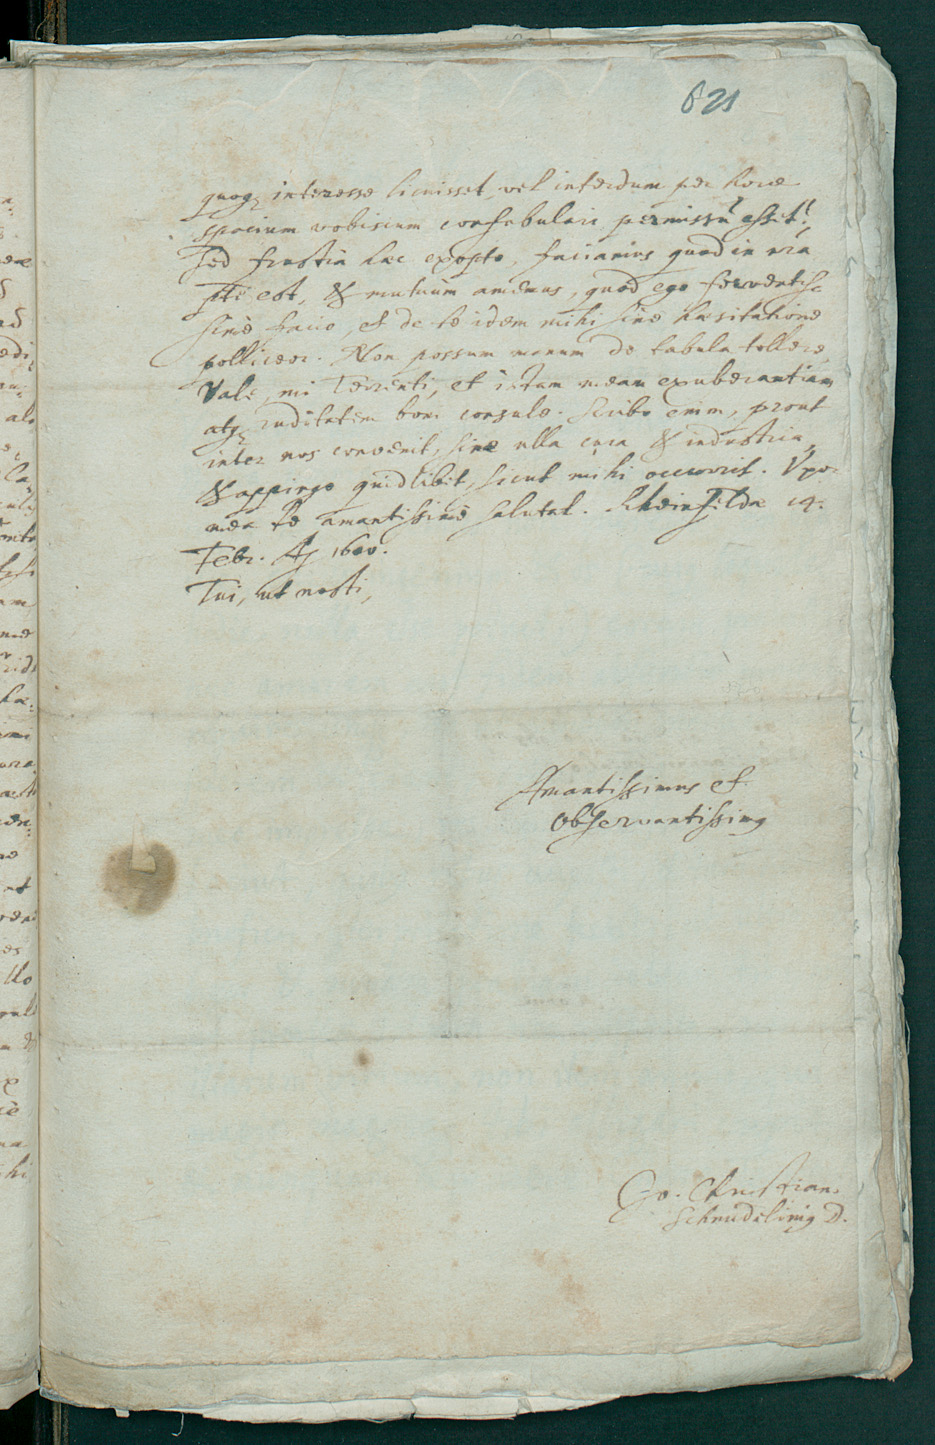 621
quoq; interesse licuisset, vel interdum per horae
spacium vobiscum confabulari permissũ esset!
Sed frustra haec exopto, faciamus quod in nrã
ptẽ est, & mutuùm amemus, quod ego ferventiss
simè facio, et de te idem mihi sine haesitatione
polliceor. Non possum manum de tabula tollere
Vale, mi Terenti, et istam meam exuberantiam
atq; ruditatem boni consule. Scribo enim, prout
inter nos convenit, sine ulla cura & industria,
& appingo quidlibet, sicut mihi occurrit. Uxor
mea te amantissimè salutat. Rheinfeldae 14.
Febr. Aõ 1600.
Tui, ut nosti,
Amantissimus et
Observantissimus
Jo. Christian.
Schmidlinus D.